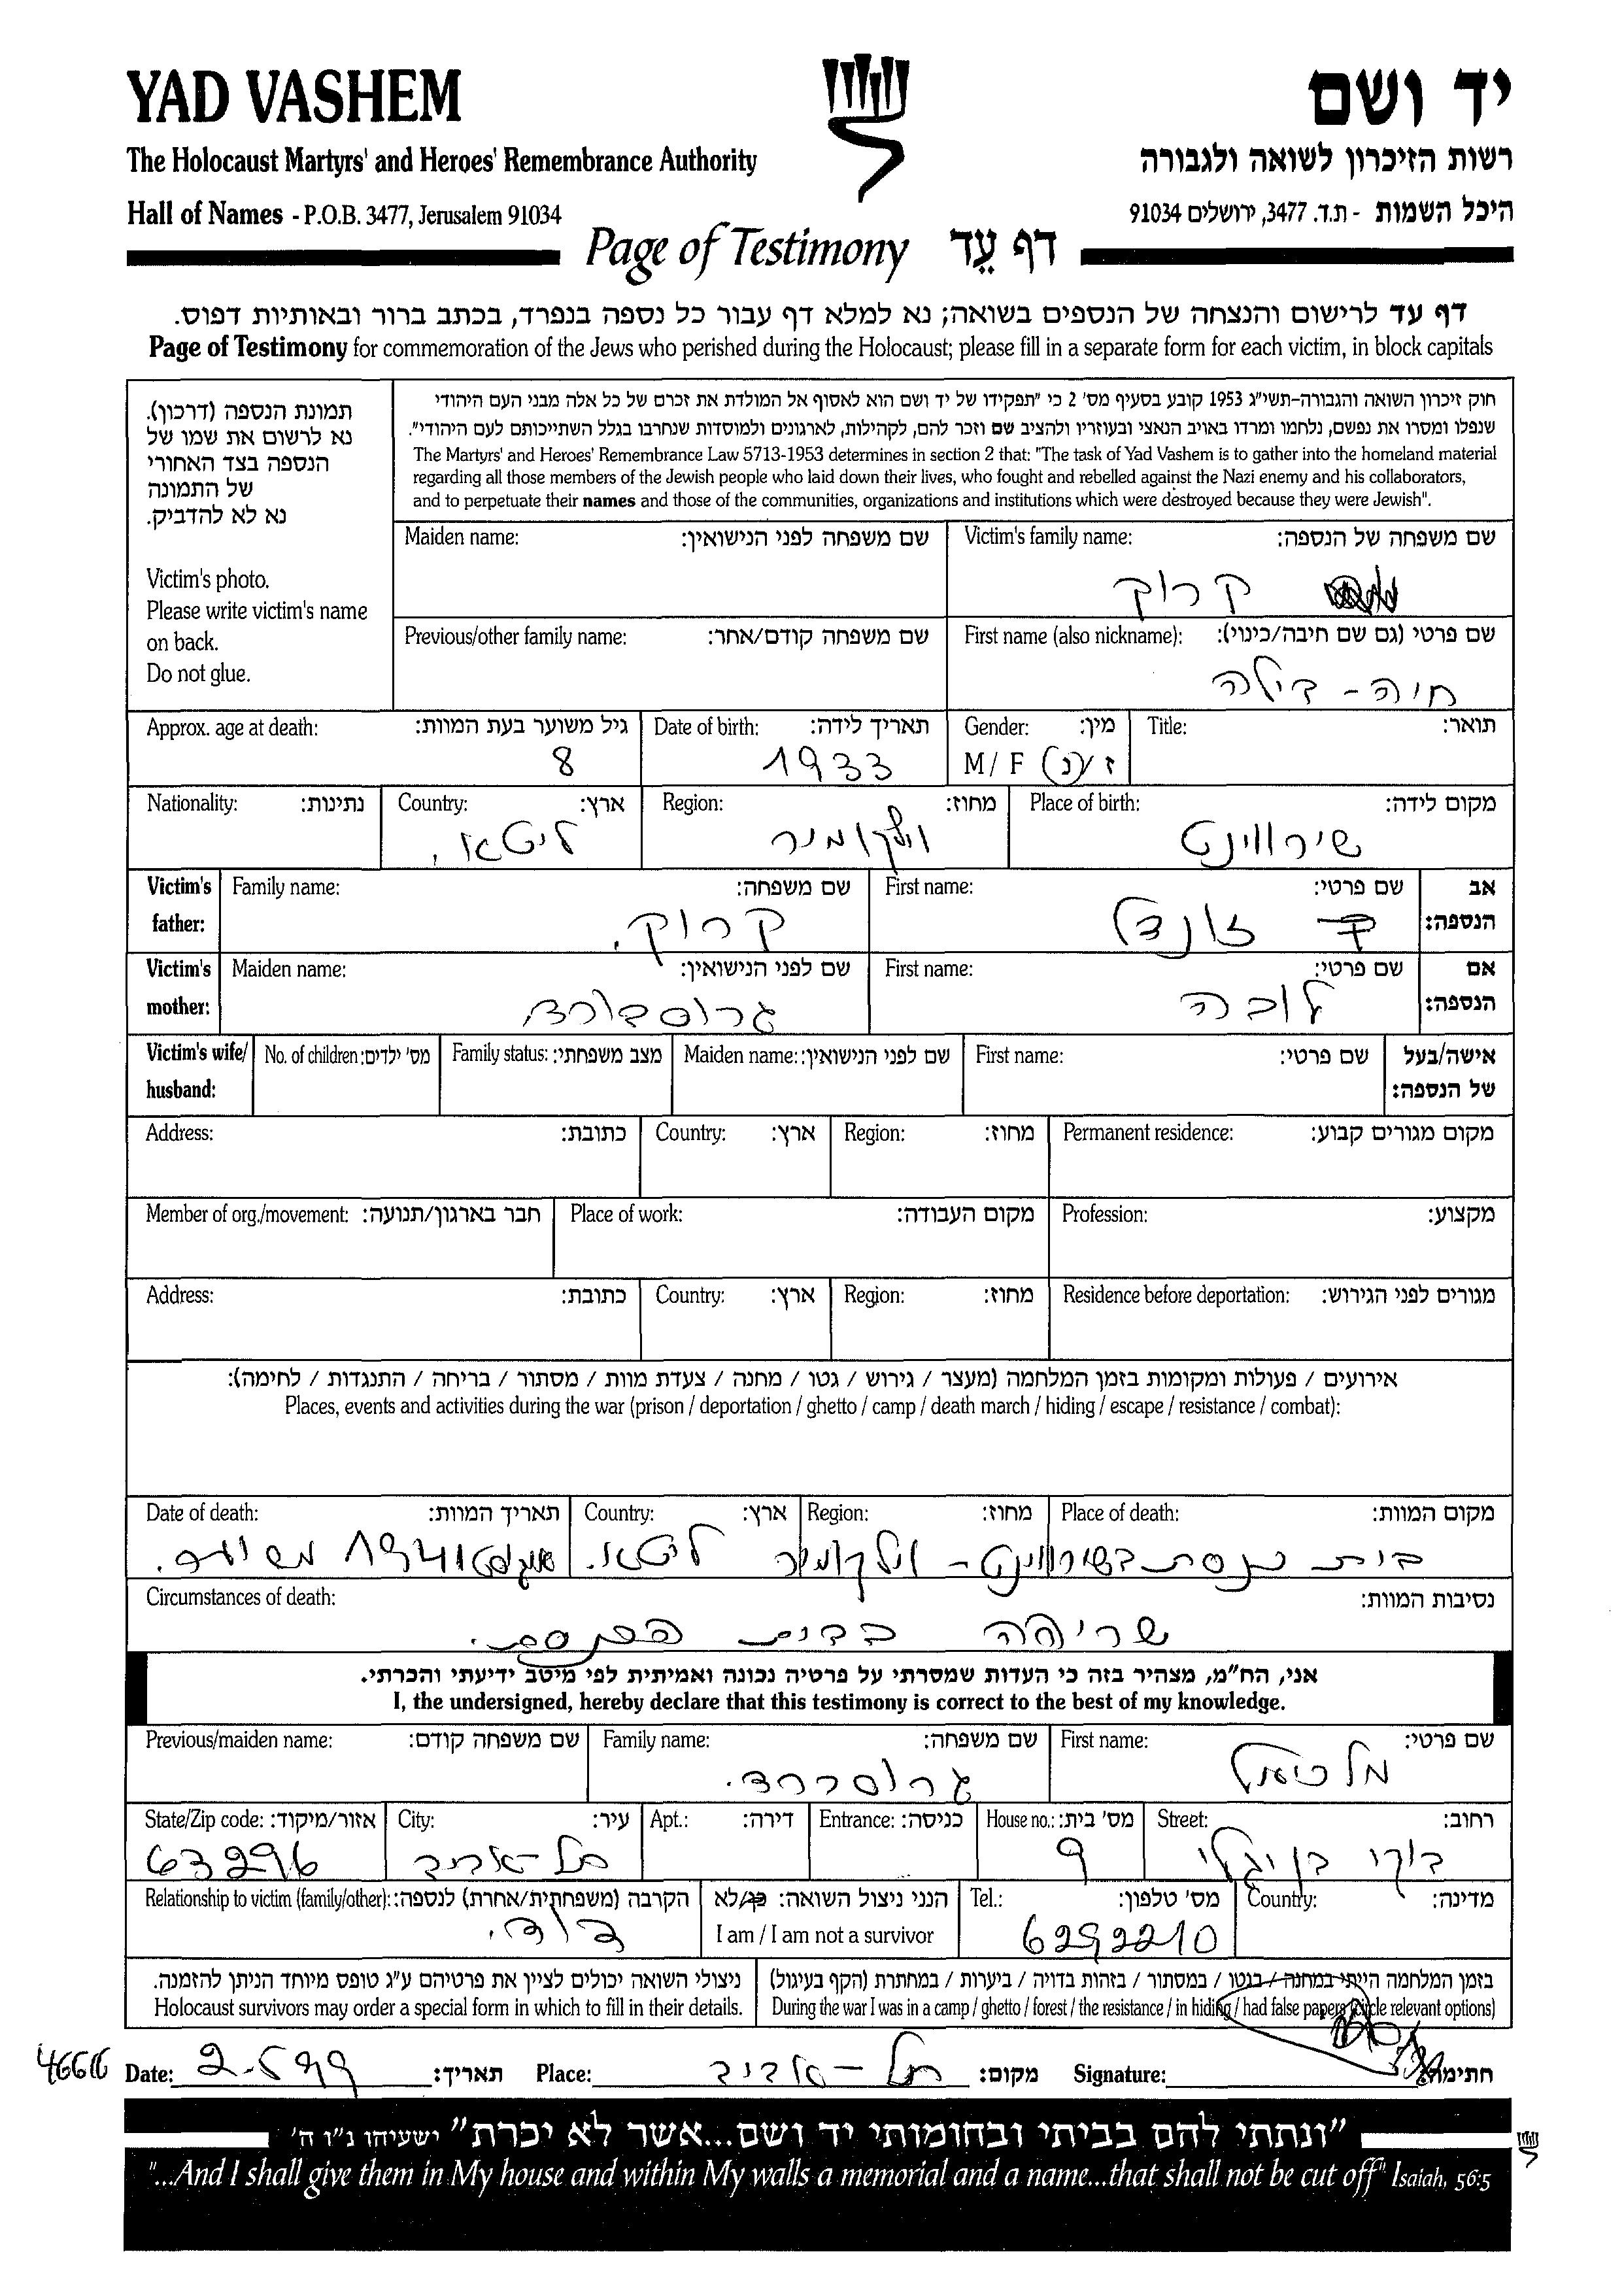 YAD VASHEM
יד ושם
The Holocaust Martyrs' and Heroes' Remembrance Authority
רשות הזיכרון לשואה ולגבורה
Hall of Names - P.O.B. 3477, Jerusalem 91034
היכל השמות - ת.ד. 3477, ירושלים 91034
Page of Testimony דף עֵד
דף עד לרישום והנצחה של הנספים בשואה; נא למלא דף עבור כל נספה בנפרד, בכתב ברור ובאותיות דפוס.
Page of Testimony for commemoration of the Jews who perished during the Holocaust; please fill in a separate form for each victim, in block capitals
תמונת הנספה (דרכון).
נא לרשום את שמו של
הנספה בצד האחורי
של התמונה
נא לא להדביק.
Victim's photo.
Please write victim's name
on back.
Do not glue.
חוק זיכרון השואה והגבורה-תשי"ג 1953 קובע בסעיף מס' 2 כי "תפקידו של יד ושם הוא לאסוף אל המולדת את זכרם של כל אלה מבני העם היהודי
שנפלו ומסרו את נפשם, נלחמו ומרדו באויב הנאצי ובעוזריו ולהציב שם וזכר להם, לקהילות, לארגונים ולמוסדות שנחרבו בגלל השתייכותם לעם היהודי".
The Martyrs' and Heroes' Remembrance Law 5713-1953 determines in section 2 that: "The task of Yad Vashem is to gather into the homeland material
regarding all those members of the Jewish people who laid down their lives, who fought and rebelled against the Nazi enemy and his collaborators,
and to perpetuate their names and those of the communities, organizations and institutions which were destroyed because they were Jewish".
Victim's family name: שם משפחה של הנספה:
קרוק
Maiden name: שם משפחה לפני הנישואין:
First name (also nickname): שם פרטי (גם שם חיבה/כינוי):
חיה - דילה
Previous/other family name: שם משפחה קודם/אחר:
Title: תואר:
Gender: מין:
M / F ז / נ
Date of birth: תאריך לידה:
1933
Approx. age at death: גיל משוער בעת המוות:
8
Place of birth: מקום לידה:
שירווינט
Region: מחוז:
וילקומיר
Country: ארץ:
ליטא.
Nationality: נתינות:
Victim's father: אב הנספה:
First name: שם פרטי:
זונדל
Family name: שם משפחה:
קרוק.
Victim's mother: אם הנספה:
First name: שם פרטי:
לובה
Maiden name: שם לפני הנישואין:
גרוסבורד
Victim's wife/ husband: אישה/בעל של הנספה:
First name: שם פרטי:
Maiden name: שם לפני הנישואין:
Family status: מצב משפחתי:
No. of children: מס' ילדים:
Permanent residence: מקום מגורים קבוע:
Region: מחוז:
Country: ארץ:
Address: כתובת:
Profession: מקצוע:
Place of work: מקום העבודה:
Member of org./movement: חבר בארגון/תנועה:
Residence before deportation: מגורים לפני הגירוש:
Region: מחוז:
Country: ארץ:
Address: כתובת:
אירועים / פעולות ומקומות בזמן המלחמה (מעצר / גירוש / גטו / מחנה / צעדת מוות / מסתור / בריחה / התנגדות / לחימה):
Places, events and activities during the war (prison / deportation / ghetto / camp / death march / hiding / escape / resistance / combat):
Place of death: מקום המוות:
בית כנסת בשירווינט -
Region: מחוז:
וילקומיר
Country: ארץ:
ליטא.
Date of death: תאריך המוות:
אוגוסט 1941 משוער.
Circumstances of death: נסיבות המוות:
שריפה בבית הכנסת.
אני, הח"מ, מצהיר בזה כי העדות שמסרתי על פרטיה נכונה ואמיתית לפי מיטב ידיעתי והכרתי.
I, the undersigned, hereby declare that this testimony is correct to the best of my knowledge.
First name: שם פרטי:
מלכיאל
Family name: שם משפחה:
גרוסברד.
Previous/maiden name: שם משפחה קודם:
Street: רחוב:
בוקי בן יגלי
House no.: מס' בית:
9
Entrance: כניסה:
Apt.: דירה:
City: עיר:
תל-אביב
State/Zip code: אזור/מיקוד:
63296
Country: מדינה:
Tel.: מס' טלפון:
6292210
הנני ניצול השואה: כן/לא
I am / I am not a survivor
Relationship to victim (family/other): הקרבה (משפחתית/אחרת) לנספה:
דוד.
בזמן המלחמה הייתי במחנה / בגטו / במסתור / בזהות בדויה / ביערות / במחתרת (הקף בעיגול)
During the war I was in a camp / ghetto / forest / the resistance / in hiding / had false papers (circle relevant options)
ניצולי השואה יכולים לציין את פרטיהם ע"ג טופס מיוחד הניתן להזמנה.
Holocaust survivors may order a special form in which to fill in their details.
46616
Date: 2.5.99 תאריך:
Place: תל-אביב מקום:
Signature: חתימה:
"ונתתי להם בביתי ובחומותי יד ושם...אשר לא יכרת" ישעיהו נ"ו ה'
"...And I shall give them in My house and within My walls a memorial and a name...that shall not be cut off" Isaiah, 56:5